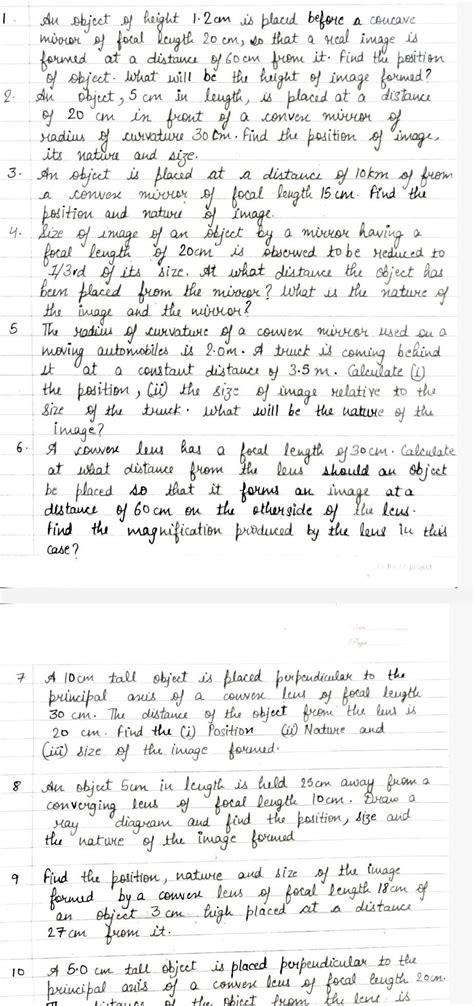 1. An object of height 1.2 cm is placed before a concave
mirror of focal length 20 cm, so that a real image is
formed at a distance of 60 cm from it. Find the position
of object. What will be the height of image formed?
2. An object, 5 cm in length, is placed at a distance
of 20 cm in front of a convex mirror of
radius of curvature 30 cm. Find the position of image,
its nature and size.
3. An object is placed at a distance of 10km of from
a convex mirror of focal length 15 cm. Find the
position and nature of image.
4. Size of image of an object by a mirror having a
focal length of 20cm is observed to be reduced to
1/3rd of its size. At what distance the object has
been placed from the mirror? What is the nature of
the image and the mirror?
5 The radius of curvature of a convex mirror used on a
moving automobiles is 2.0m. A truck is coming behind
it at a constant distance of 3.5 m. Calculate (i)
the position, (ii) the size of image relative to the
size of the truck. What will be the nature of the
image?
6. A convex lens has a focal length of 30 cm. Calculate
at what distance from the lens should an object
be placed so that it forms an image at a
distance of 60 cm on the otherside of the lens.
Find the magnification produced by the lens in this
case?
7 A 10cm tall object is placed perpendicular to the
principal axis of a convex lens of focal length
30 cm. The distance of the object from the lens is
20 cm. Find the (i) Position (ii) Nature and
(iii) size of the image formed.
8 An object 5cm in length is held 25cm away from a
converging lens of focal length 10cm. Draw a
ray diagram and find the position, size and
the nature of the image formed
9 Find the position, nature and size of the image
formed by a convex lens of focal length 18cm of
an object 3 cm high placed at a distance
27 cm from it.
10 A 5.0 cm tall object is placed perpendicular to the
principal axis of a convex lens of focal length 20cm.
distance of the object from the lens is